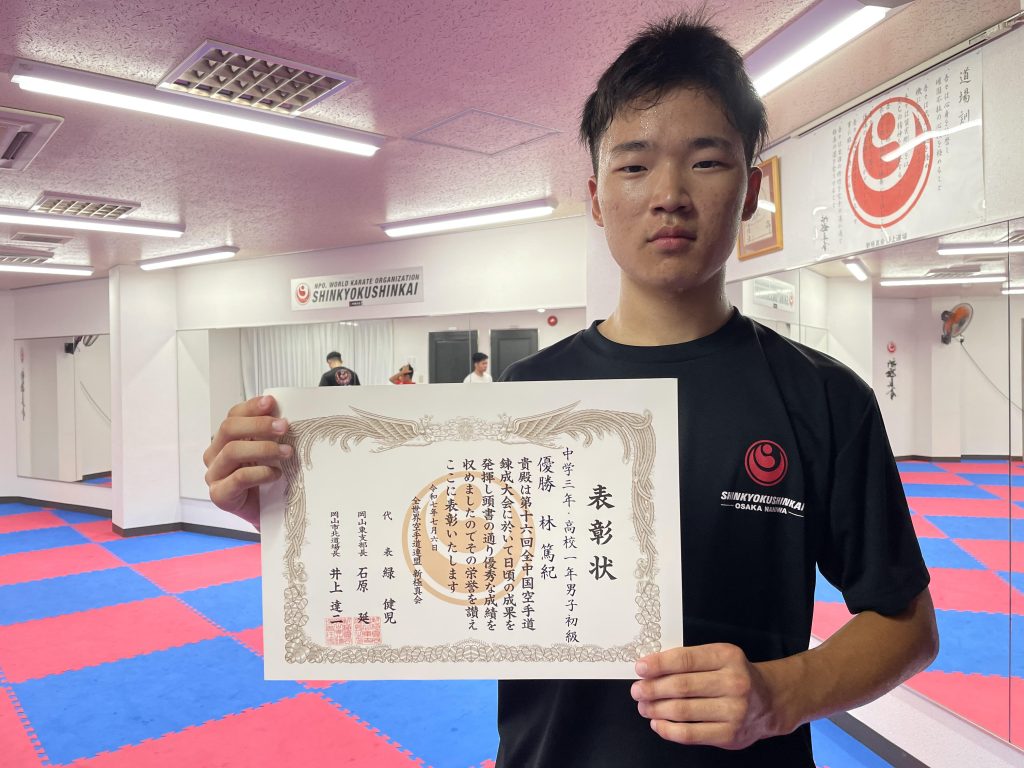 表彰状
中学三年・高校一年男子初級
優勝 林 篤紀
貴殿は第十六回全中国空手道
錬成大会に於いて日頃の成果を
発揮し頭書の通り優秀な成績を
収めましたのでその栄誉を讃え
ここに表彰いたします
令和七年七月六日
全世界空手道連盟 新極真会
代表 緑 健児
岡山東支部長 石原 延
岡山市北道場長 井上 達二
NPO. WORLD KARATE ORGANIZATION
SHINKYOKUSHINKAI
SHINKYOKUSHINKAI
OSAKA NANIWA
道場訓